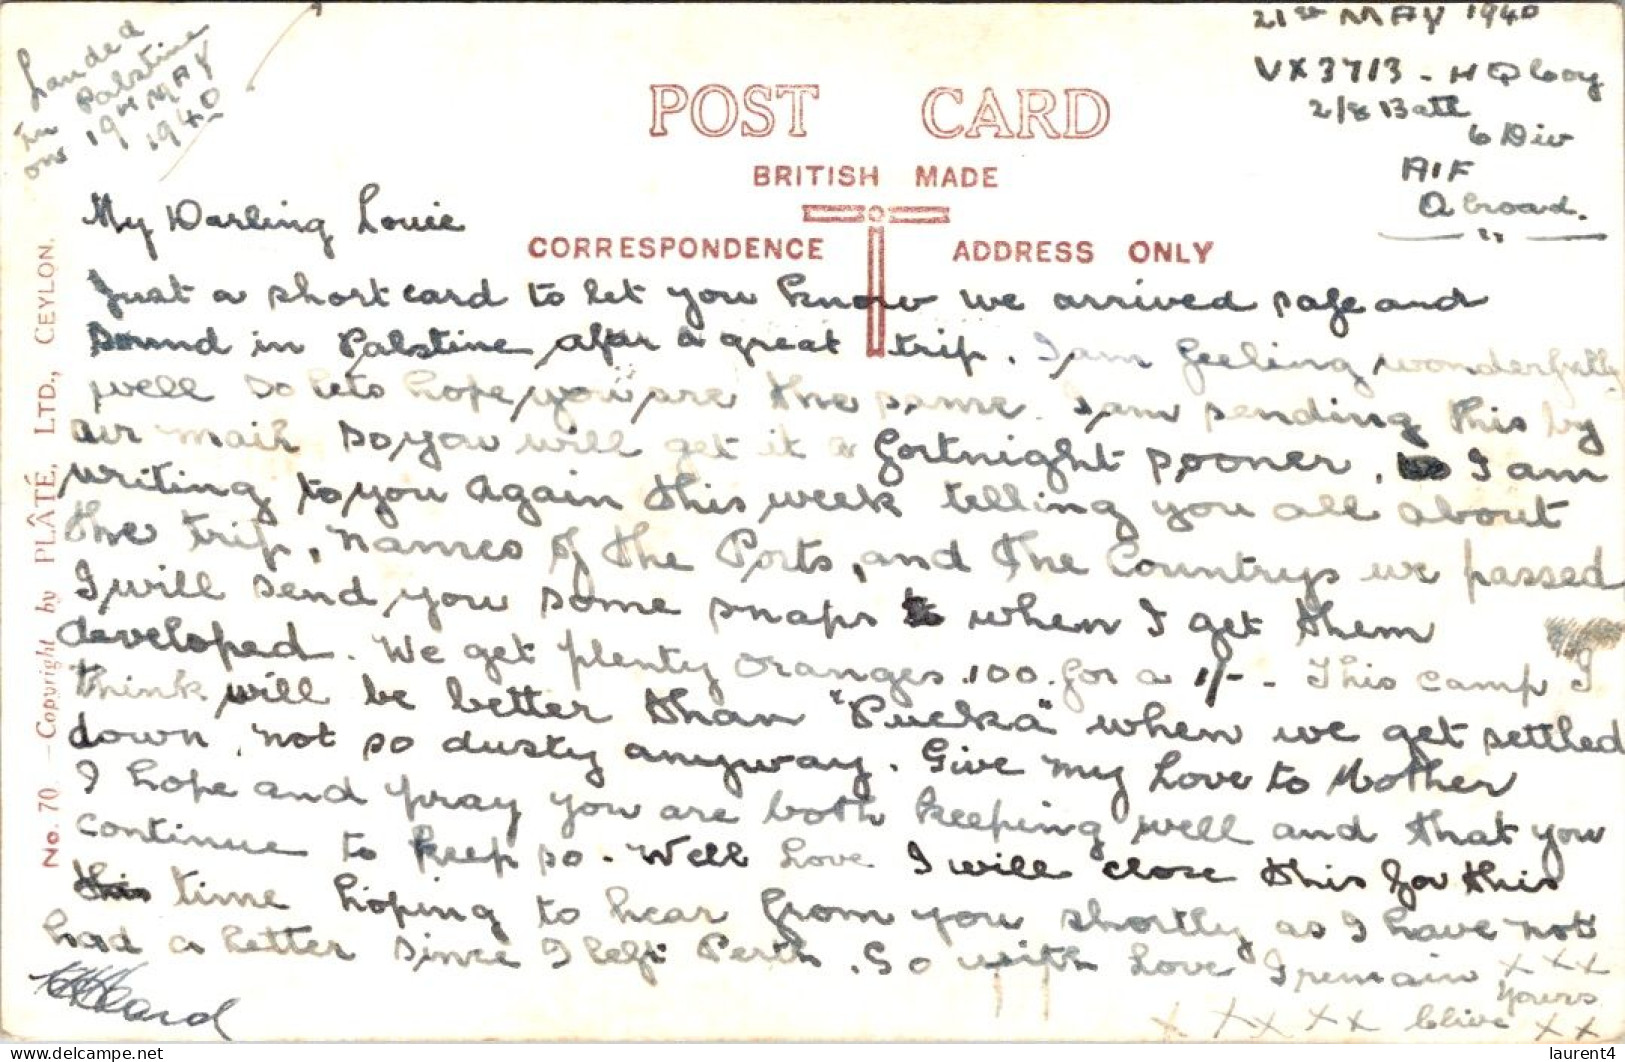 Landed
in Palstine
on 19th MAY
1940
21st MAY 1940
VX3713 - HQ Coy
2/8 Batt
6 Div
AIF
Abroad.
POST CARD
BRITISH MADE
CORRESPONDENCE
ADDRESS ONLY
No. 70 — Copyright by PLÂTÉ, LTD., CEYLON.
My Darling Louie
Just a short card to let you know we arrived safe and
sound in Palstine after a great trip. I am feeling wonderfully
well so lets hope you are the same. I am sending this by
air mail so you will get it a fortnight sooner. I am
writing to you again this week telling you all about
the trip, names of the Ports, and the Countrys we passed
I will send you some snaps when I get them
developed. We get plenty oranges 100 for a 1/- - This camp I
think will be better than "Pucka" when we get settled
down, not so dusty anyway. Give my Love to Mother
I hope and pray you are both keeping well and that you
continue to keep so. Well Love I will close this for this
time hoping to hear from you shortly as I have not
had a letter since I left Perth. So with Love I remain x x x
Yours
x x x x x Clive x x
laurent4